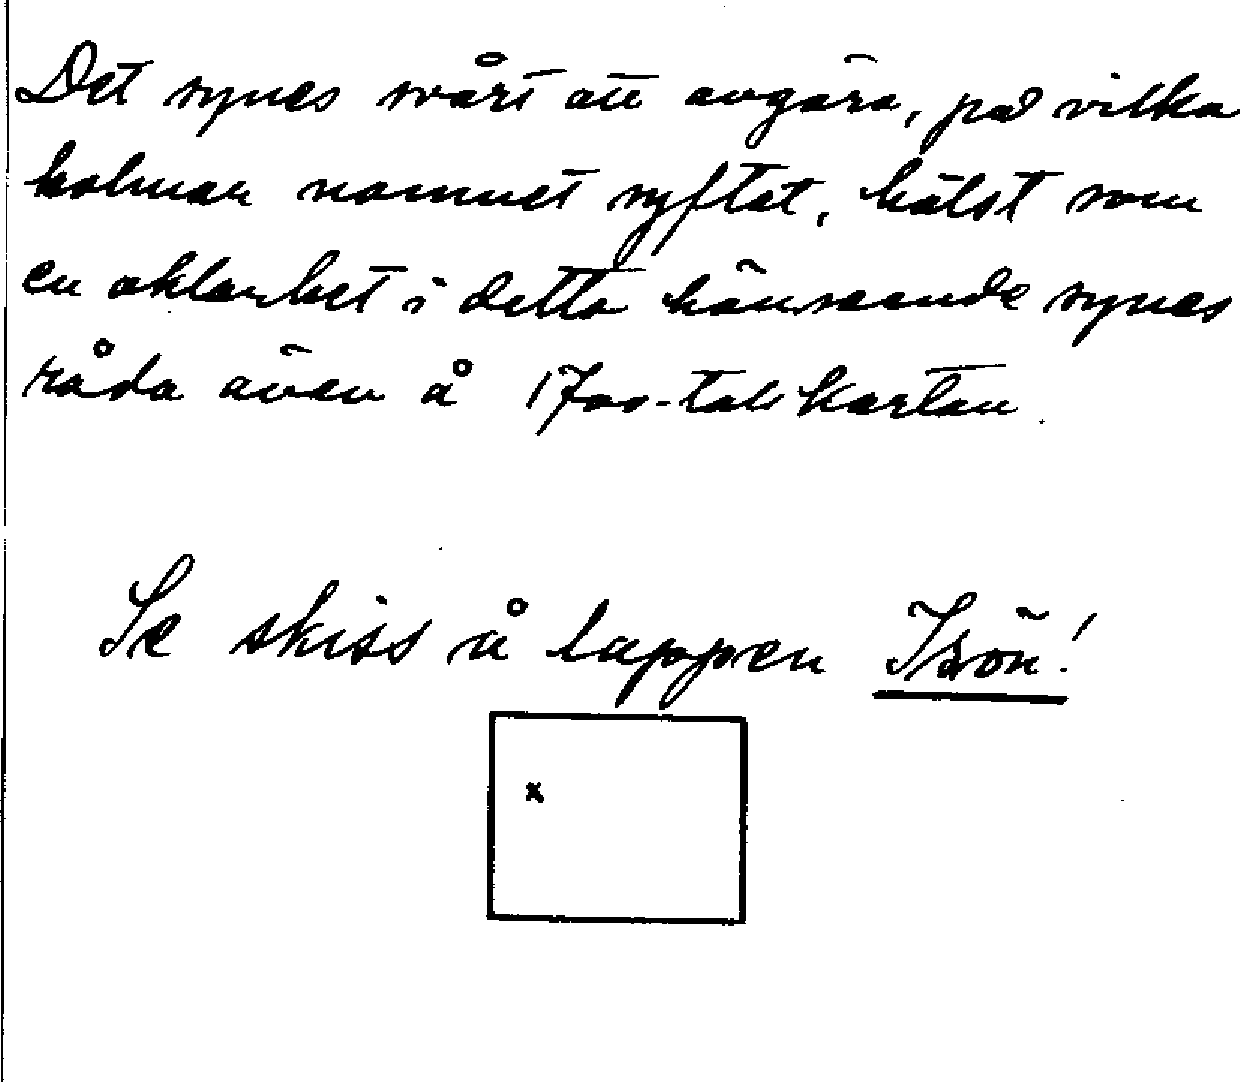 Det synes svårt att avgöra, på vilka
holmar namnet syftat, hälst som
en oklarhet i detta hänseende synes
råda även å 1700-tals kartan.
Se skiss å lappen !
x